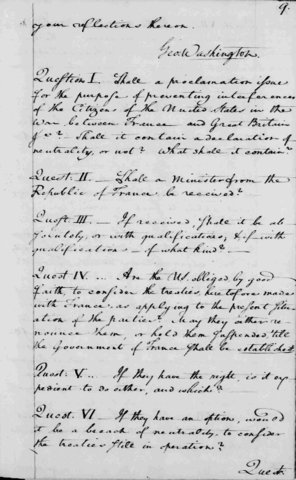 9.
your reflections thereon.
Geo. Washington.
Question I. Shall a proclamation issue
for the purpose of preventing interferences
of the Citizens of the United States in the
War between France and Great Britain
&ca? Shall it contain a declaration of
neutrality, or not? What shall it contain?
Quest. II — Shall a Minister from the
Republic of France be received?
Quest III — If received, shall it be ab
solutely, or with qualifications; & if with
qualifications — of what kind?
Quest IV .. Are the US. obliged by good
faith to consider the treaties heretofore made
with France as applying to the present situ
ation of the parties? may they either re
nounce them or hold them suspended 'till
the Government of France shall be established
Quest. V .. If they have the right, is it ex
pedient to do either, and which?
Quest. VI — If they have an option, would
it be a breach of neutrality to consider
the treaties still in operation?
Quest.